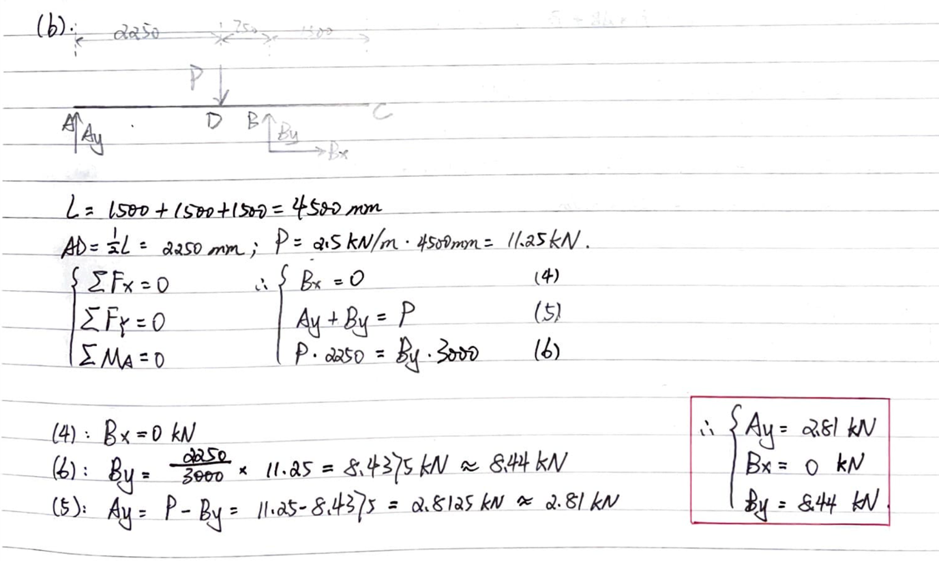 (b):
2250 750 1500
P
A Ay D B By Bx C
L = 1500 + 1500 + 1500 = 4500 mm
AD = ½L = 2250 mm ; P = 2.5 kN/m · 4500mm = 11.25 kN.
{ ΣFx = 0 ∴ { Bx = 0 (4)
ΣFy = 0 Ay + By = P (5)
ΣMA = 0 P · 2250 = By · 3000 (6)
(4) : Bx = 0 kN
(6) : By = 2250/3000 × 11.25 = 8.4375 kN ≈ 8.44 kN
(5) : Ay = P - By = 11.25 - 8.4375 = 2.8125 kN ≈ 2.81 kN
∴ { Ay = 2.81 kN
Bx = 0 kN
By = 8.44 kN.